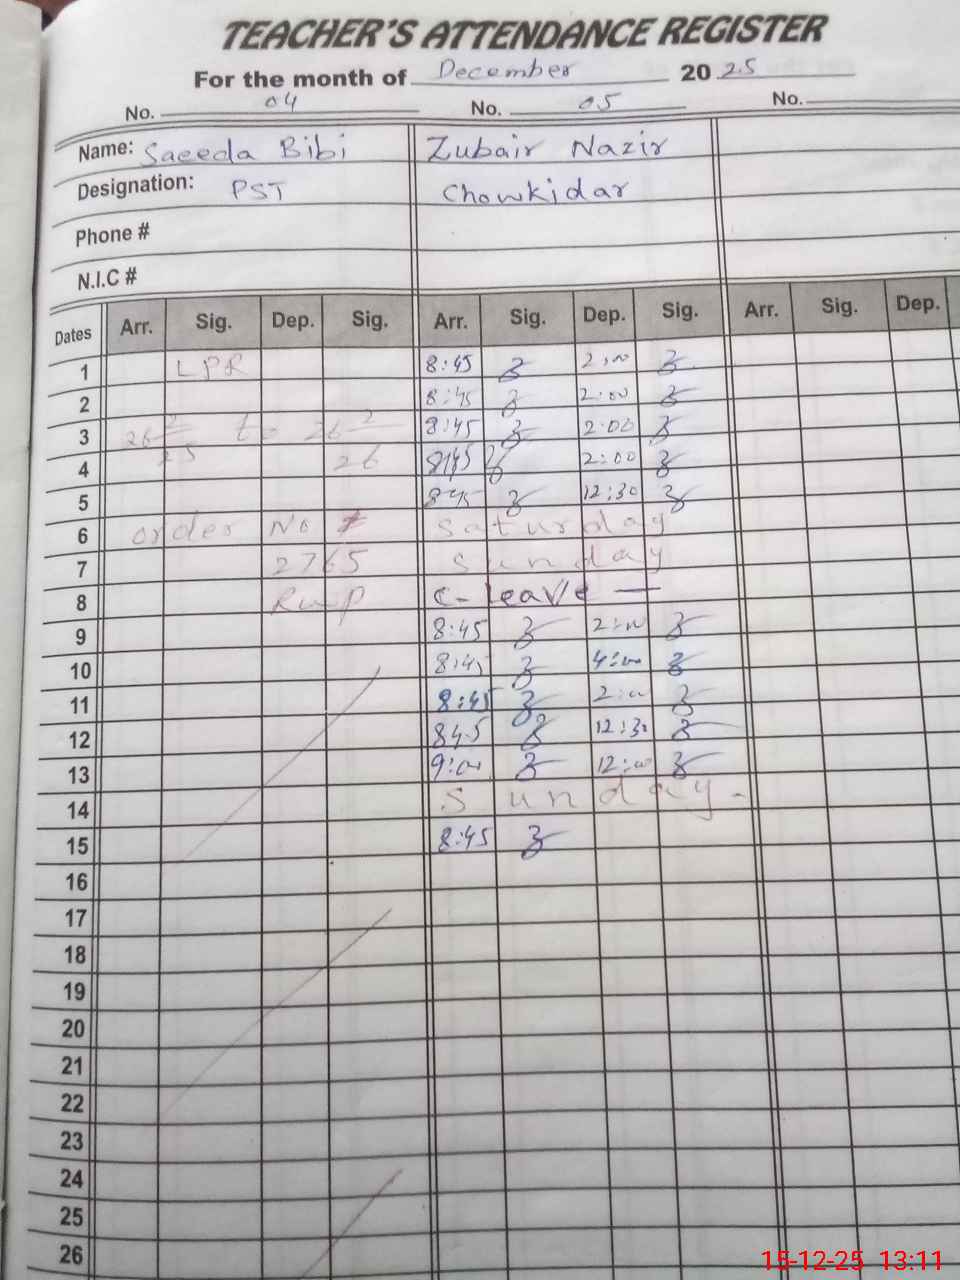 TEACHER'S ATTENDANCE REGISTER
For the month of December 2025
No. 04 No. 05 No.
Name: Saeeda Bibi Zubair Nazir
Designation: PST Chowkidar
Phone #
N.I.C #
Dates Arr. Sig. Dep. Sig. Arr. Sig. Dep. Sig. Arr. Sig. Dep.
1 LPR 8:45 2:00
2 8:45 2:00
3 26 2 to 26 2 8:45 2:00
4 25 26 8:45 2:00
5 8:45 12:30
6 order No Saturday
7 2765 Sunday
8 RWP C-leave —
9 8:45 2:00
10 8:45 4:00
11 8:45 2:00
12 845 12:30
13 9:00 12:00
14 Sunday-
15 8:45
16
17
18
19
20
21
22
23
24
25
26
15-12-25 13:11